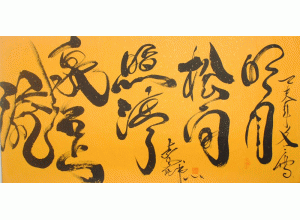 明月
松间
照清
泉石上
流